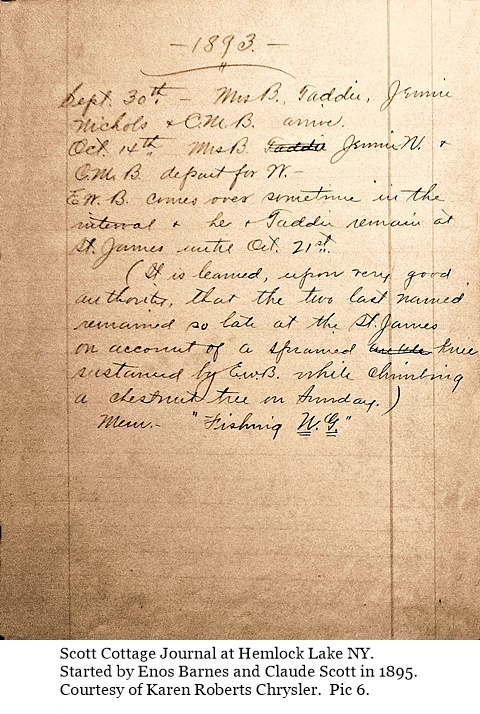 - 1893. -
Sept. 30th - Mrs B., Taddie, Jennie
Nichols & C.M.B. arrive.
Oct. 14th Mrs B. Taddie Jennie N. &
C.M.B. depart for W. -
E.W.B. comes over sometime in the
interval & he & Taddie remain at
St. James until Oct. 21st.
(It is learned, upon very good
authority, that the two last named
remained so late at the St. James
on account of a sprained ankle knee
sustained by E.W.B. while climbing
a chestnut tree on Sunday.)
Mem. - "Fishing N. G."
Scott Cottage Journal at Hemlock Lake NY.
Started by Enos Barnes and Claude Scott in 1895.
Courtesy of Karen Roberts Chrysler. Pic 6.